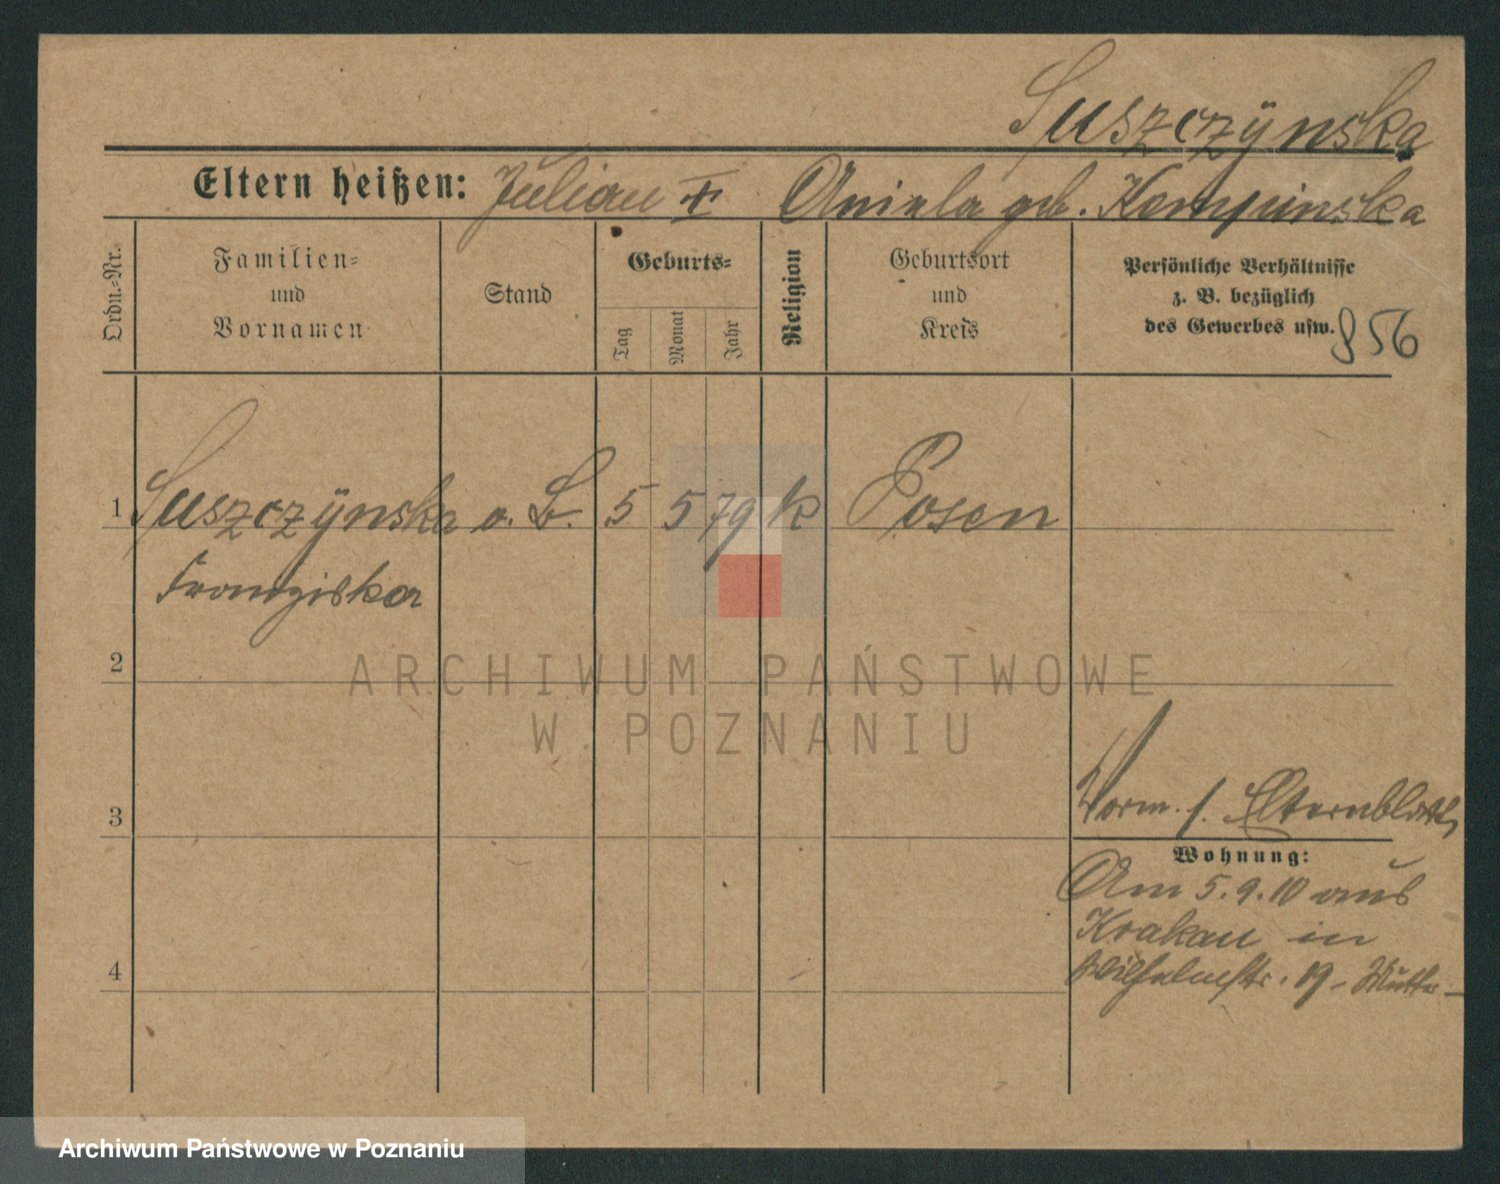 Suszczÿnska
Eltern heißen: Julian † Aniela geb. Kempinska
Ordn.-Nr.
Familien-
und
Vornamen
Stand
Geburts-
Tag
Monat
Jahr
Religion
Geburtsort
und
Kreis
Persönliche Verhältnisse
z. B. bezüglich
des Gewerbes usw.
856
1 Suszczÿnska o. B. 5 5 79 k Posen
Franziska
2
ARCHIWUM PAŃSTWOWE
W POZNANIU
3
Verm. s. Elternblatt
Wohnung:
Am 5.9.10 aus
Krakau in
4
Wilhelmstr. 19 - Mutter -
Archiwum Państwowe w Poznaniu